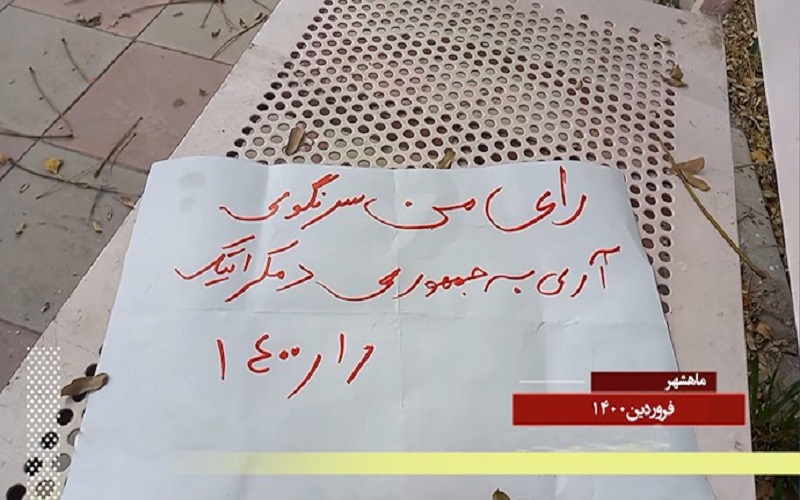 رای من سرنگونی
آری به جمهوری دمکراتیک
۱۴۰۰
ماهشهر
فروردین ۱۴۰۰